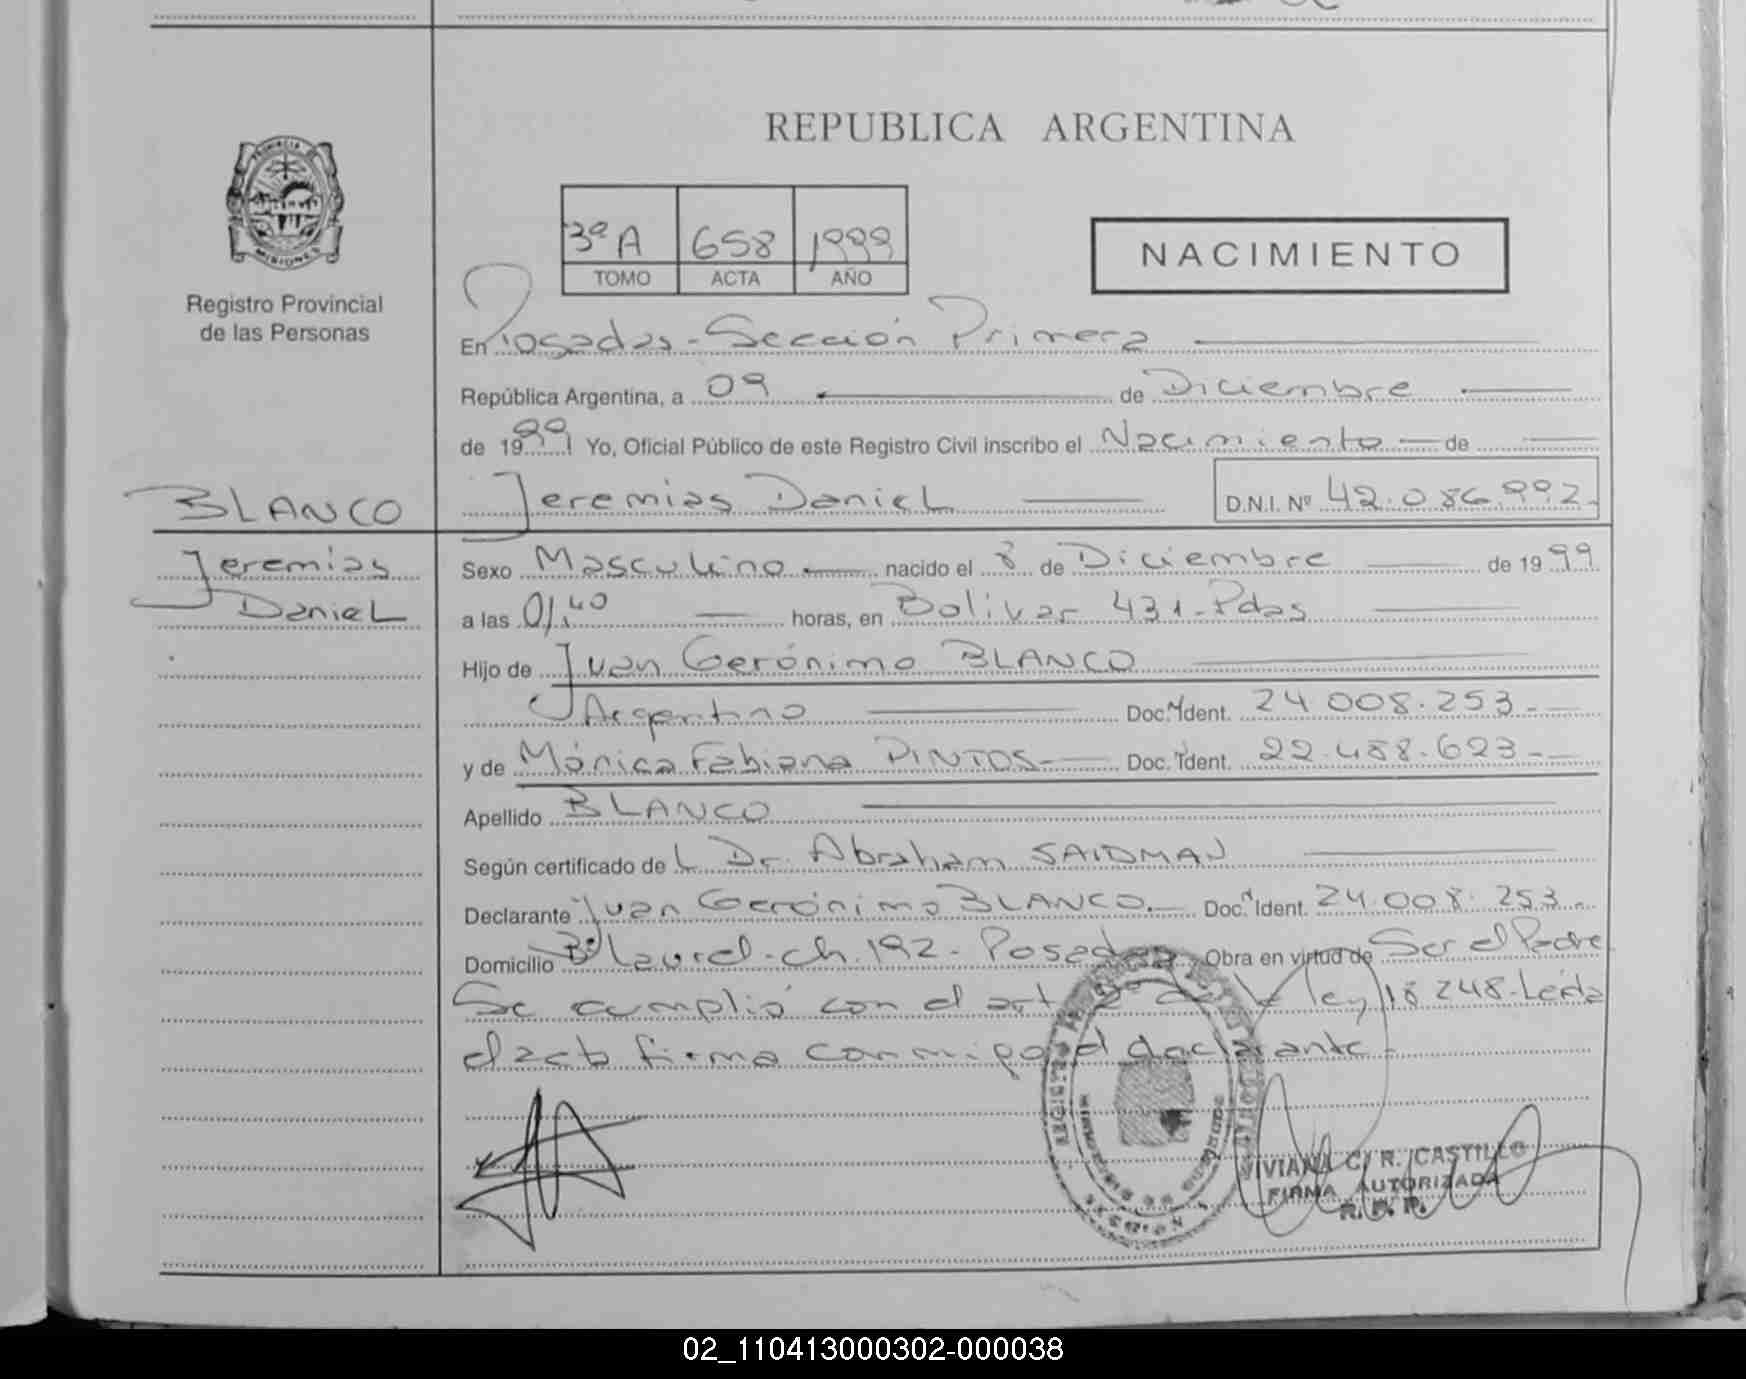 REPUBLICA ARGENTINA
PROVINCIA DE
MISIONES
Registro Provincial
de las Personas
3ª A 658 1999
TOMO ACTA AÑO
NACIMIENTO
En Posadas - Sección Primera
República Argentina, a 09 de Diciembre
de 1999 Yo, Oficial Público de este Registro Civil inscribo el Nacimiento de
BLANCO Jeremias Daniel D.N.I. Nº 42.086.992.-
Jeremias
Daniel
Sexo Masculino nacido el 8 de Diciembre de 1999
a las 01,40 horas, en Bolivar 431 - Pdas
Hijo de Juan Gerónimo BLANCO
Argentino Doc. Ident. 24 008.253.-
y de Mónica Fabiana PINTOS Doc. Ident. 22.488.623.-
Apellido BLANCO
Según certificado de L Dr. Abraham SAIDMAN
Declarante Juan Gerónimo BLANCO.- Doc. Ident. 24.008.253.-
Domicilio Bº Laurel - ch. 192 - Posadas Obra en virtud de Ser el Padre
Se cumplió con el art ley 18 248 - Leída
el acta firma conmigo el declarante
VIVIANA C. R. CASTILLO
FIRMA AUTORIZADA
R. P. P.
02_110413000302-000038